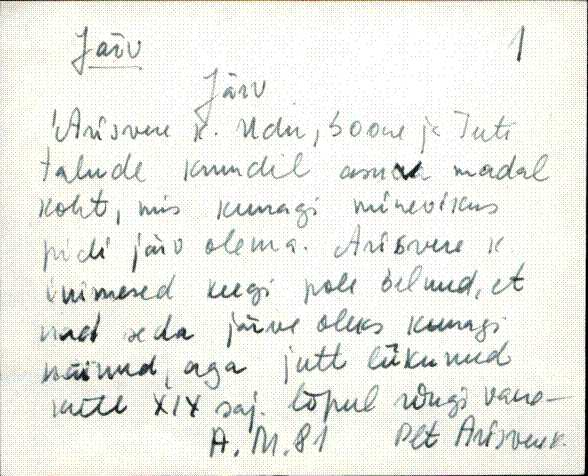 Järv
1
Järv
Arisvere k. Udu, Soone ja Juti
talude krundil asuv madal
koht, mis kunagi minevikus
pidi järv olema. Arisvere k
inimesed keegi pole öelnud, et
nad seda järve oleks kunagi
näinud, aga jutt liikunud
XIX saj. lõpul ringi vana-
A.M.81 Plt Arisvere k.